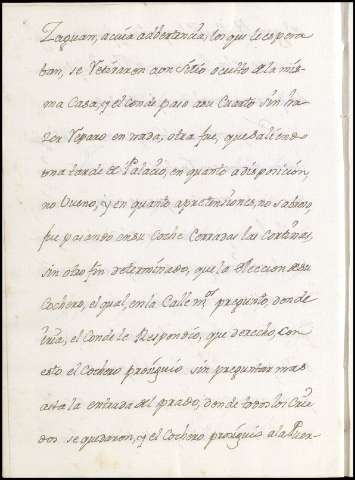 Zaguan, acuia advertencia, los que le espera
ban, se Retiraron aun sitio oculto de la mis-
ma Casa, y el Conde paso a su Cuarto sin ha-
zer Reparo en nada, otra fue, que saliendo
una tarde de Palacio, en quanto a disposicion,
no bueno, y en quanto apretensiones, no sabroso,
fue paseando en su Coche Cerradas las Cortinas,
sin otro fin determinado, que la eleccion de su
Cochero, el qual, en la Calle m.or pregunto, donde
iria, el Conde le Respondio, que derecho, Con
esto el Cochero prosiguio sin preguntar mas
asta la entrada del prado, donde todos los Cria
dos se quedaron, y el Cochero prosiguio a la Puer-